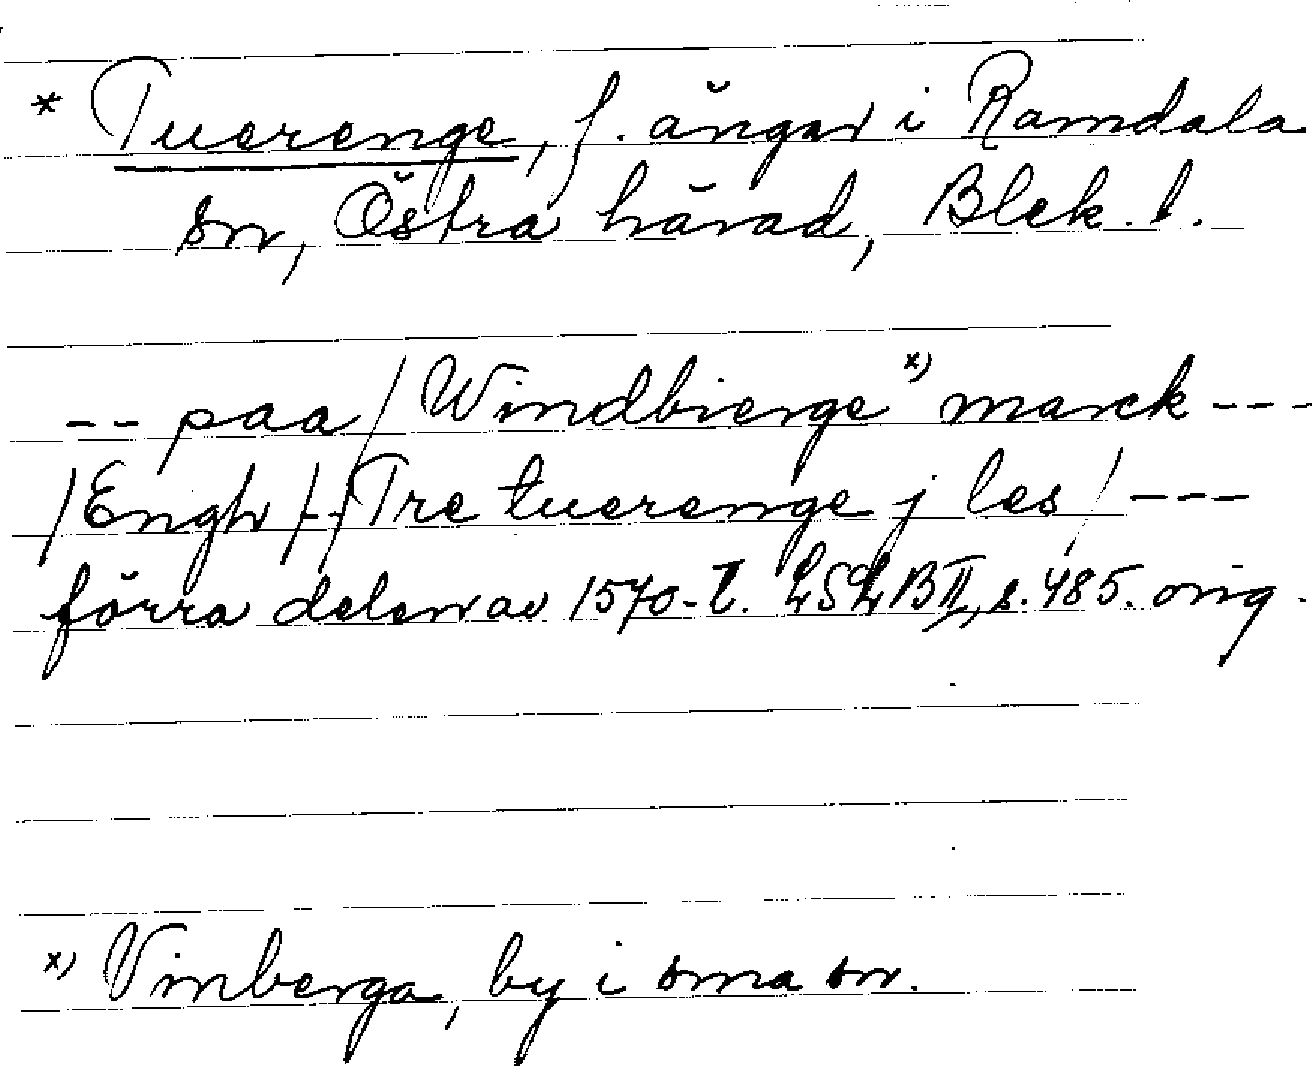 * Tuerenge, f. ängar i Ramdala
sn, Östra härad, Blek. l.
-- paa / Windbierge x) marck ---
/ Engh /-/ Tre tuerenge j les / ---
förra delen av 1570-t. LSLB II, s. 485. orig.
x) Vinberga, by i sma sn.